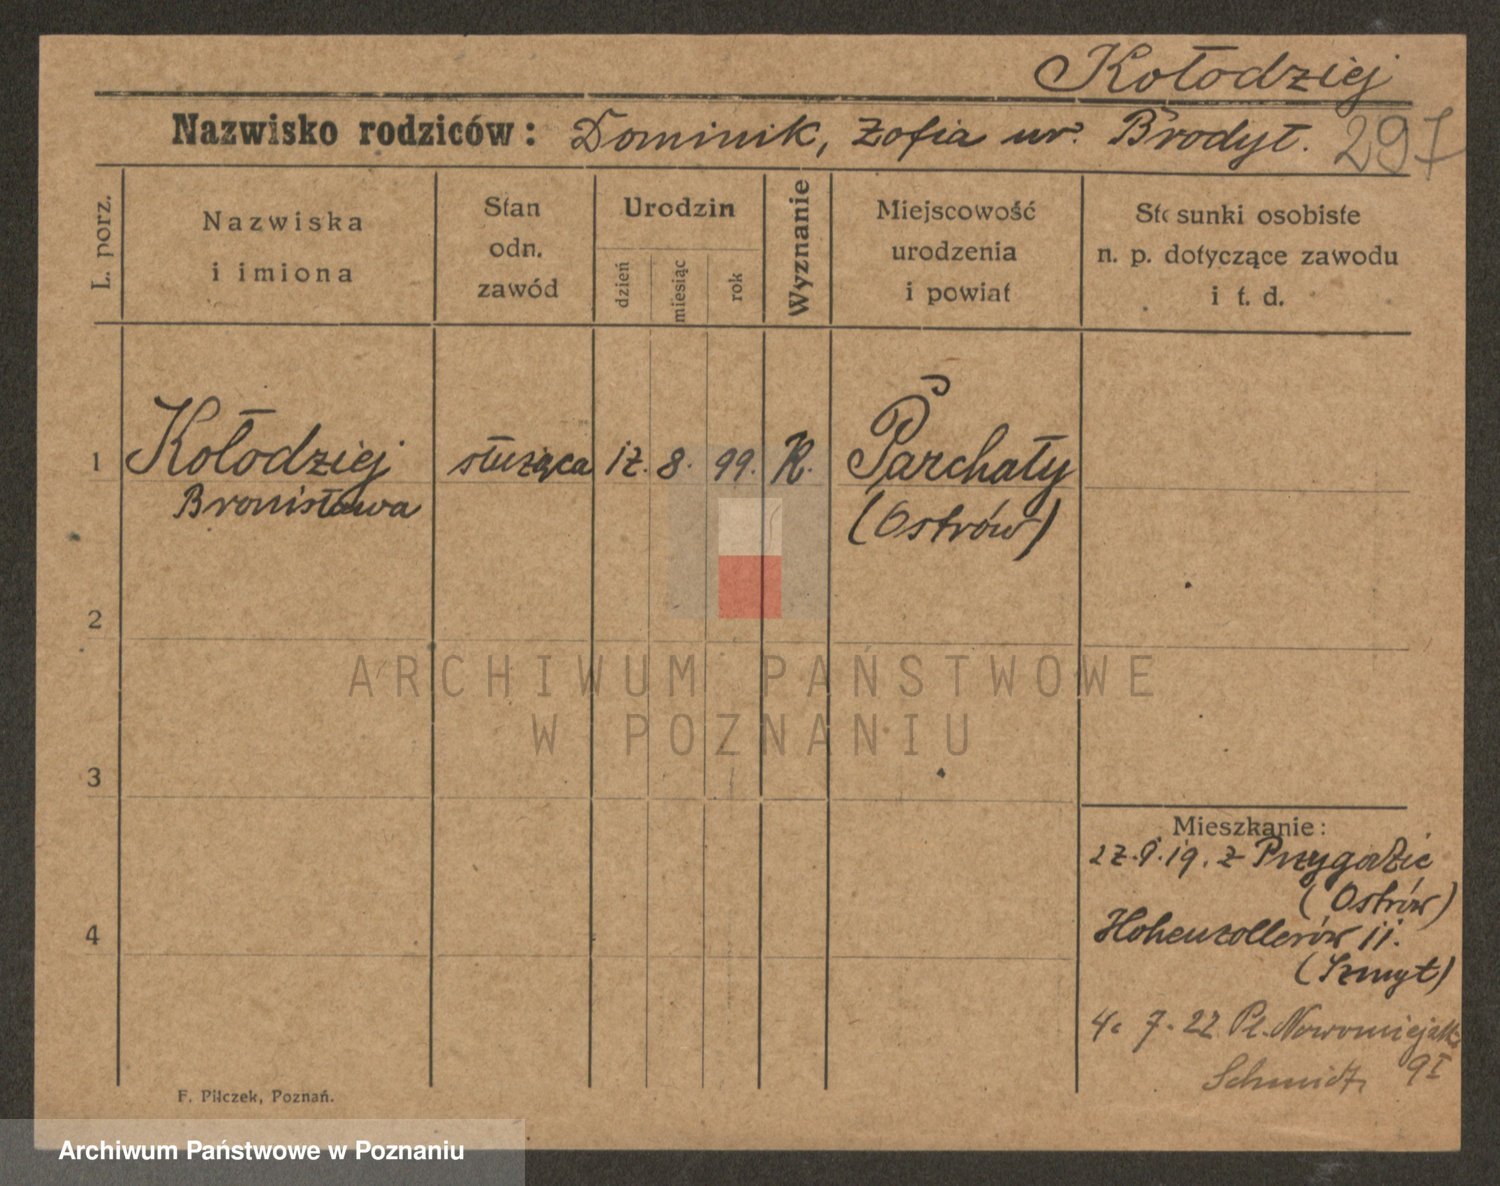 Kołodziej
Nazwisko rodziców: Dominik, Zofia ur. Brodył. 297
L. porz.
Nazwiska
i imiona
Stan
odn.
zawód
Urodzin
dzień
miesiąc
rok
Wyznanie
Miejscowość
urodzenia
i powiat
Stosunki osobiste
n. p. dotyczące zawodu
i t. d.
1 Kołodziej służąca 12. 8. 99. K. Parchały
Bronisława (Ostrów)
2
3
4
ARCHIWUM PAŃSTWOWE
W POZNANIU
Mieszkanie:
19. z Przygodzic
(Ostrów)
Hohenzollerów 11.
(Szmyt)
4. 7. 22 Pl. Nowomiejski
Schmidt 9 I
F. Pilczek, Poznań.
Archiwum Państwowe w Poznaniu